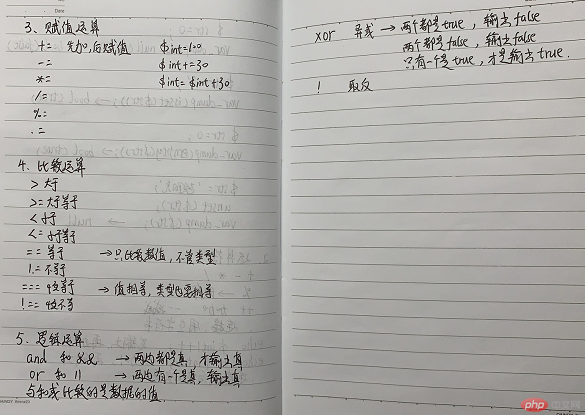 3、赋值运算
+= 先加,后赋值 $int=100
-= $int+=30
*= $int=$int+30
/=
%=
.=
4、比较运算
> 大于
>= 大于等于
< 小于
<= 小于等于
== 等于 →只比较数值,不管类型
!= 不等于
=== 全等于 → 值相等,类型也要相等
!== 全不等
5、逻辑运算
and 和 && → 两边都是真,才输出真
or 和 || → 两边有一个是真,输出真
与和或比较的是数据的值
xor 异或 → 两个都是true,输出false
两个都是false,输出false
只有一个是true,才是输出true.
! 取反
php 中文网